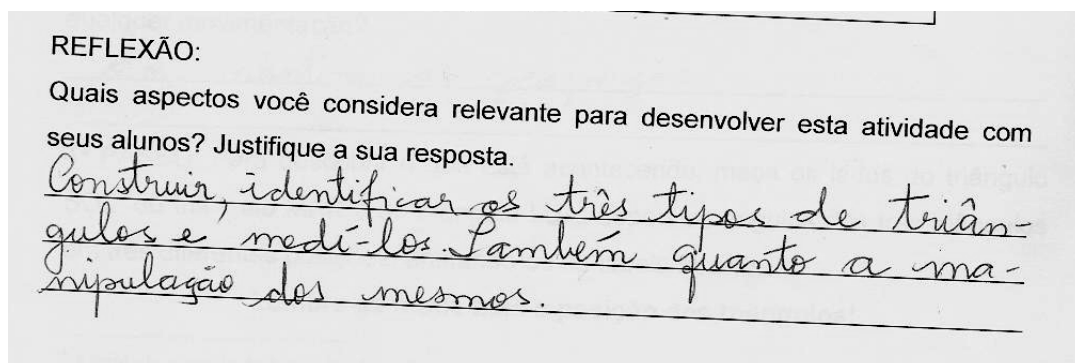 REFLEXÃO:
Quais aspectos você considera relevante para desenvolver esta atividade com
seus alunos? Justifique a sua resposta.
Construir, identificar os três tipos de triân-
gulos e medí-los. Também quanto a ma-
nipulação dos mesmos.